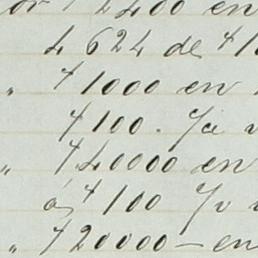 or $2400 en
4 624 de $1
" $1000 en
$100. %
" $40000 en
á $100 %
" $20000 — en